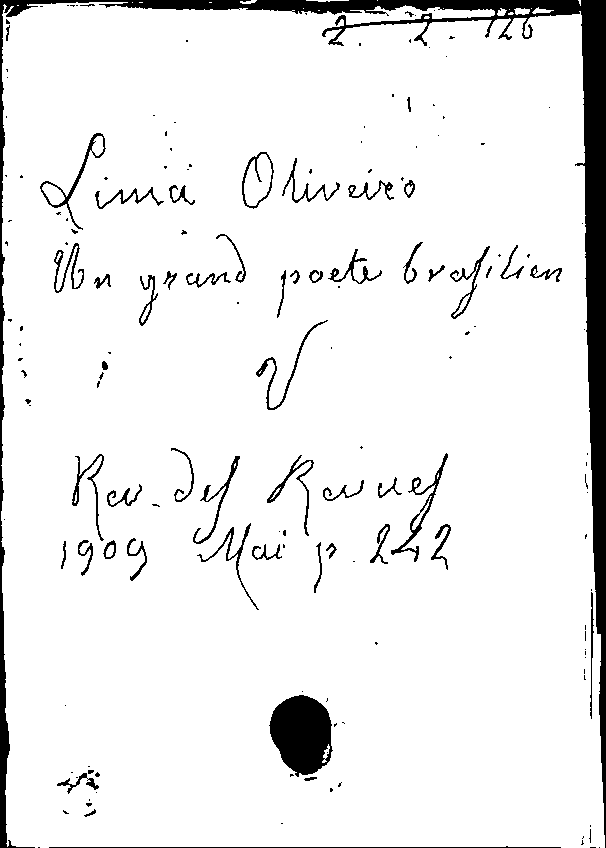 2. 2. 126
Lima Oliveiro
Un grand poete brasilien
V
Rev. des Revues
1909 Mai p. 242